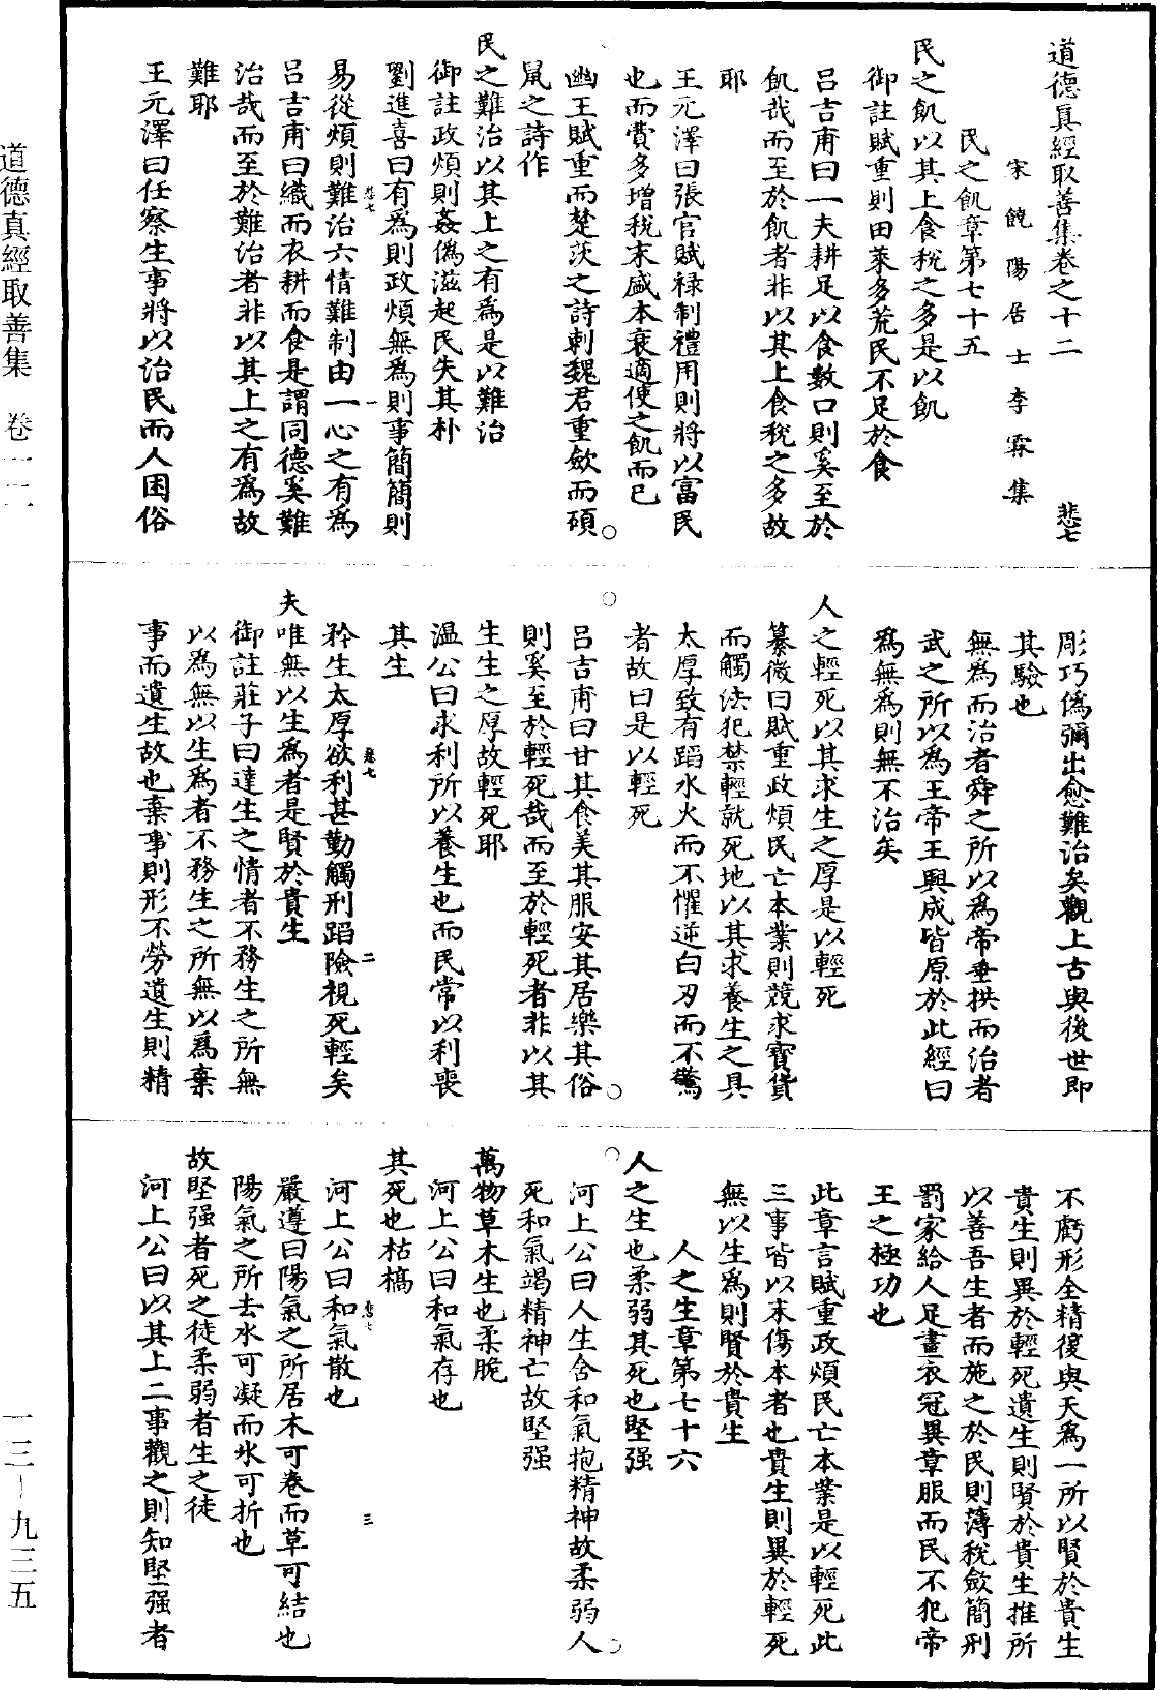 道德真經取善集卷之十二　悲七
宋饒陽居士李霖集
民之飢章第七十五
民之飢以其上食稅之多是以飢
御註賦重則田萊多荒民不足於食
呂吉甫曰一夫耕足以食數口則奚至於
飢哉而至於飢者非以其上食稅之多故
耶
王元澤曰張官賦祿制禮用則將以富民
也而費多增稅末盛本衰適使之飢而已
幽王賦重而楚茨之詩刺魏君重斂而碩
鼠之詩作
民之難治以其上之有為是以難治
御註政煩則姦偽滋起民失其朴
劉進喜曰有為則政煩無為則事簡簡則
易從煩則難治六情難制由一心之有為
呂吉甫曰織而衣耕而食是謂同德奚難
治哉而至於難治者非以其上之有為故
難耶
王元澤曰任察生事將以治民而人困俗
彫巧偽彌出愈難治矣觀上古與後世即
其驗也
無為而治者舜之所以為帝垂拱而治者
武之所以為王帝王興成皆原於此經曰
為無為則無不治矣
人之輕死以其求生之厚是以輕死
纂微曰賦重政煩民亡本業則競求寶貨
而觸法犯禁輕就死地以其求養生之具
太厚致有蹈水火而不懼逆白刃而不驚
者故曰是以輕死
呂吉甫曰甘其食美其服安其居樂其俗
則奚至於輕死哉而至於輕死者非以其
生生之厚故輕死耶
溫公曰求利所以養生也而民常以利喪
其生
矜生太厚欲利甚勤觸刑蹈險視死輕矣
夫唯無以生為者是賢於貴生
御註莊子曰達生之情者不務生之所無
以為無以生為者不務生之所無以為棄
事而遺生故也棄事則形不勞遺生則精
不虧形全精復與天為一所以賢於貴生
貴生則異於輕死遺生則賢於貴生推所
以善吾生者而施之於民則薄稅斂簡刑
罰家給人足畫衣冠異章服而民不犯帝
王之極功也
此章言賦重政煩民亡本業是以輕死此
三事皆以末傷本者也貴生則異於輕死
無以生為則賢於貴生
人之生章第七十六
人之生也柔弱其死也堅强
河上公曰人生含和氣抱精神故柔弱人
死和氣竭精神亡故堅强
萬物草木生也柔脆
河上公曰和氣存也
其死也枯槁
河上公曰和氣散也
嚴遵曰陽氣之所居木可卷而草可結也
陽氣之所去水可凝而氷可折也
故堅强者死之徒柔弱者生之徒
河上公曰以其上二事觀之則知堅强者
悲七　一
悲七　二
悲七　三
道德真經取善集　卷一二
一三—九三五